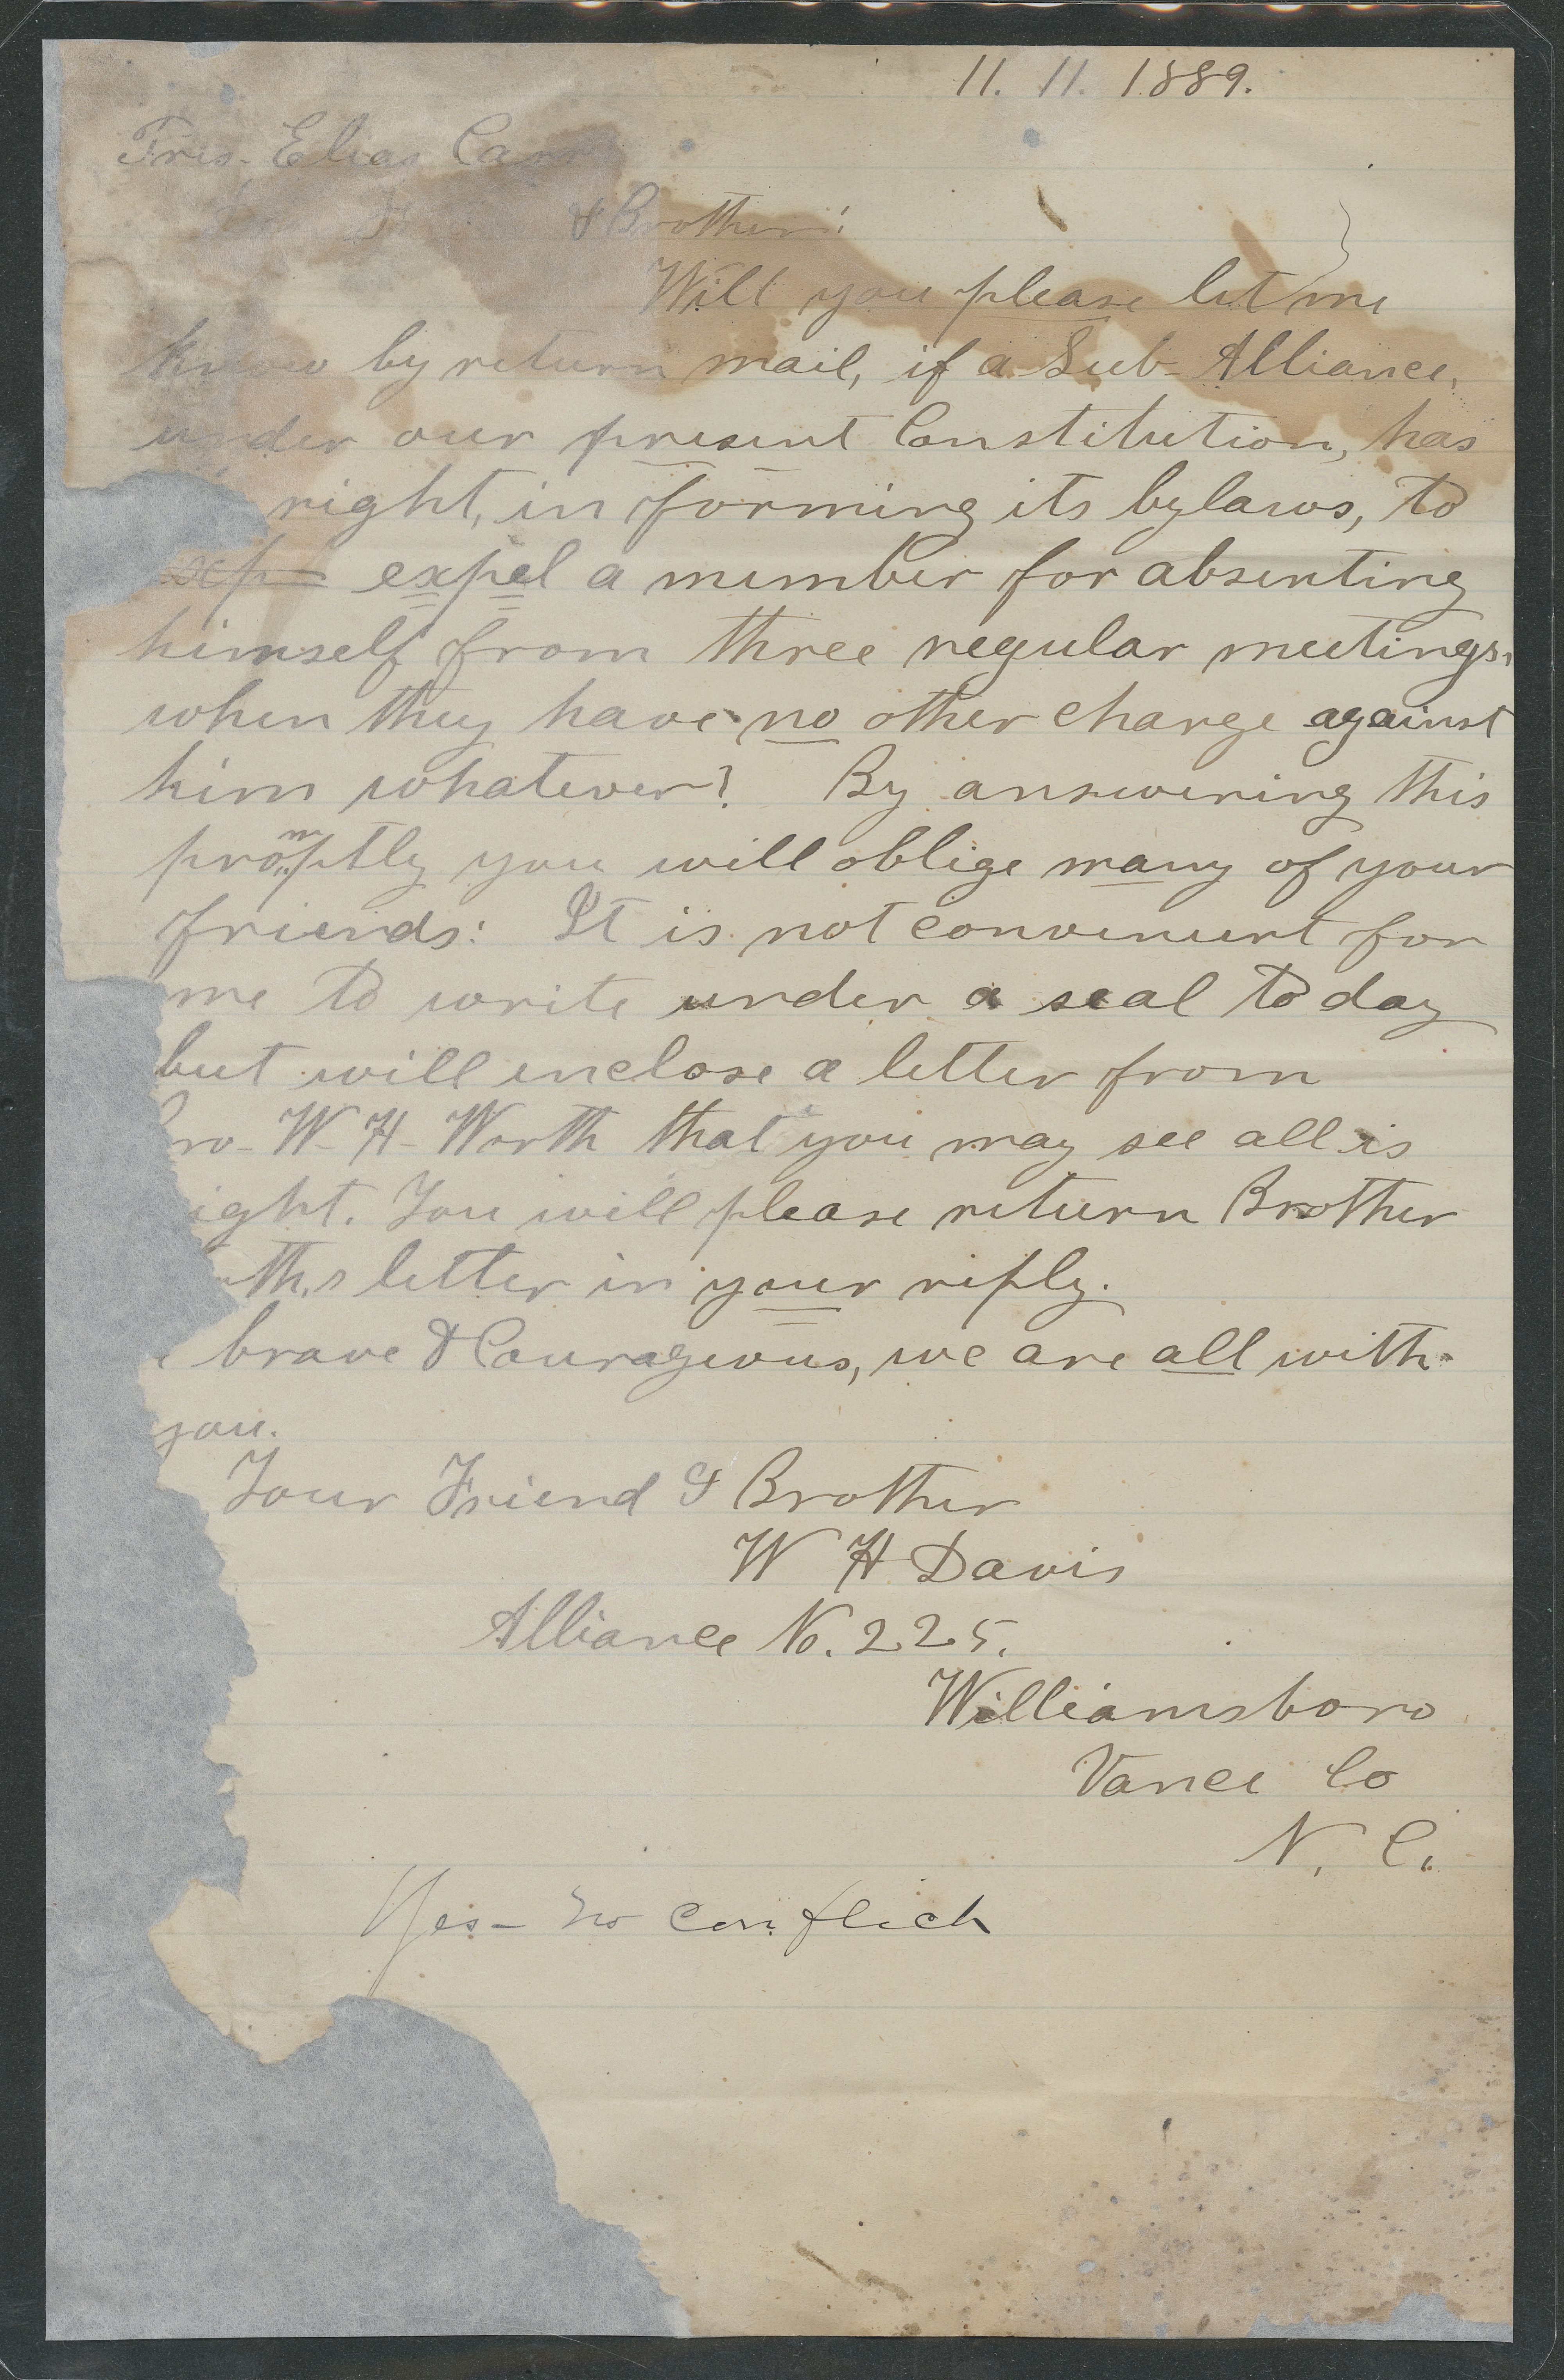 11. 11. 1889.
Pres. Elias Carr
& Brother:
Will you please let me
know by return mail, if a Sub-Alliance,
under our present Constitution, has
right, in forming its bylaws, to
exp expel a member for absenting
himself from three regular meetings,
when they have no other charge against
him whatever? By answering this
promptly you will oblige many of your
friends: It is not convenient for
me to write under a seal to day
but will enclose a letter from
ro- W- H- Worth that you may see all is
ight. You will please return Brother
ths letter in your reply.
brave & Courageous, we are all with
you.
Your Friend & Brother
W H Davis
Alliance No. 225.
Williamsboro
Vance Co
N. C.
Yes - no conflict